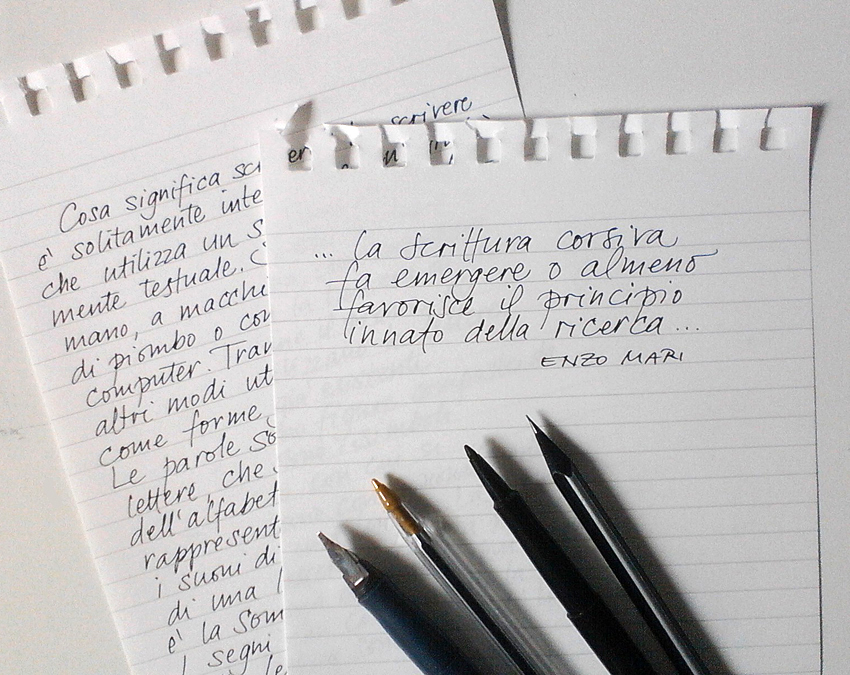 scrivere
Cosa significa sc
è solitamente inte
che utilizza un s
mente testuale.
mano, a macchi
di piombo o con
computer. Tran
altri modi ut
come forme
Le parole so
lettere, che
dell'alfabet
rappresent
i suoni di
di una l
è la som
I segni
le
... la scrittura corsiva
fa emergere o almeno
favorisce il principio
innato della ricerca...
ENZO MARI